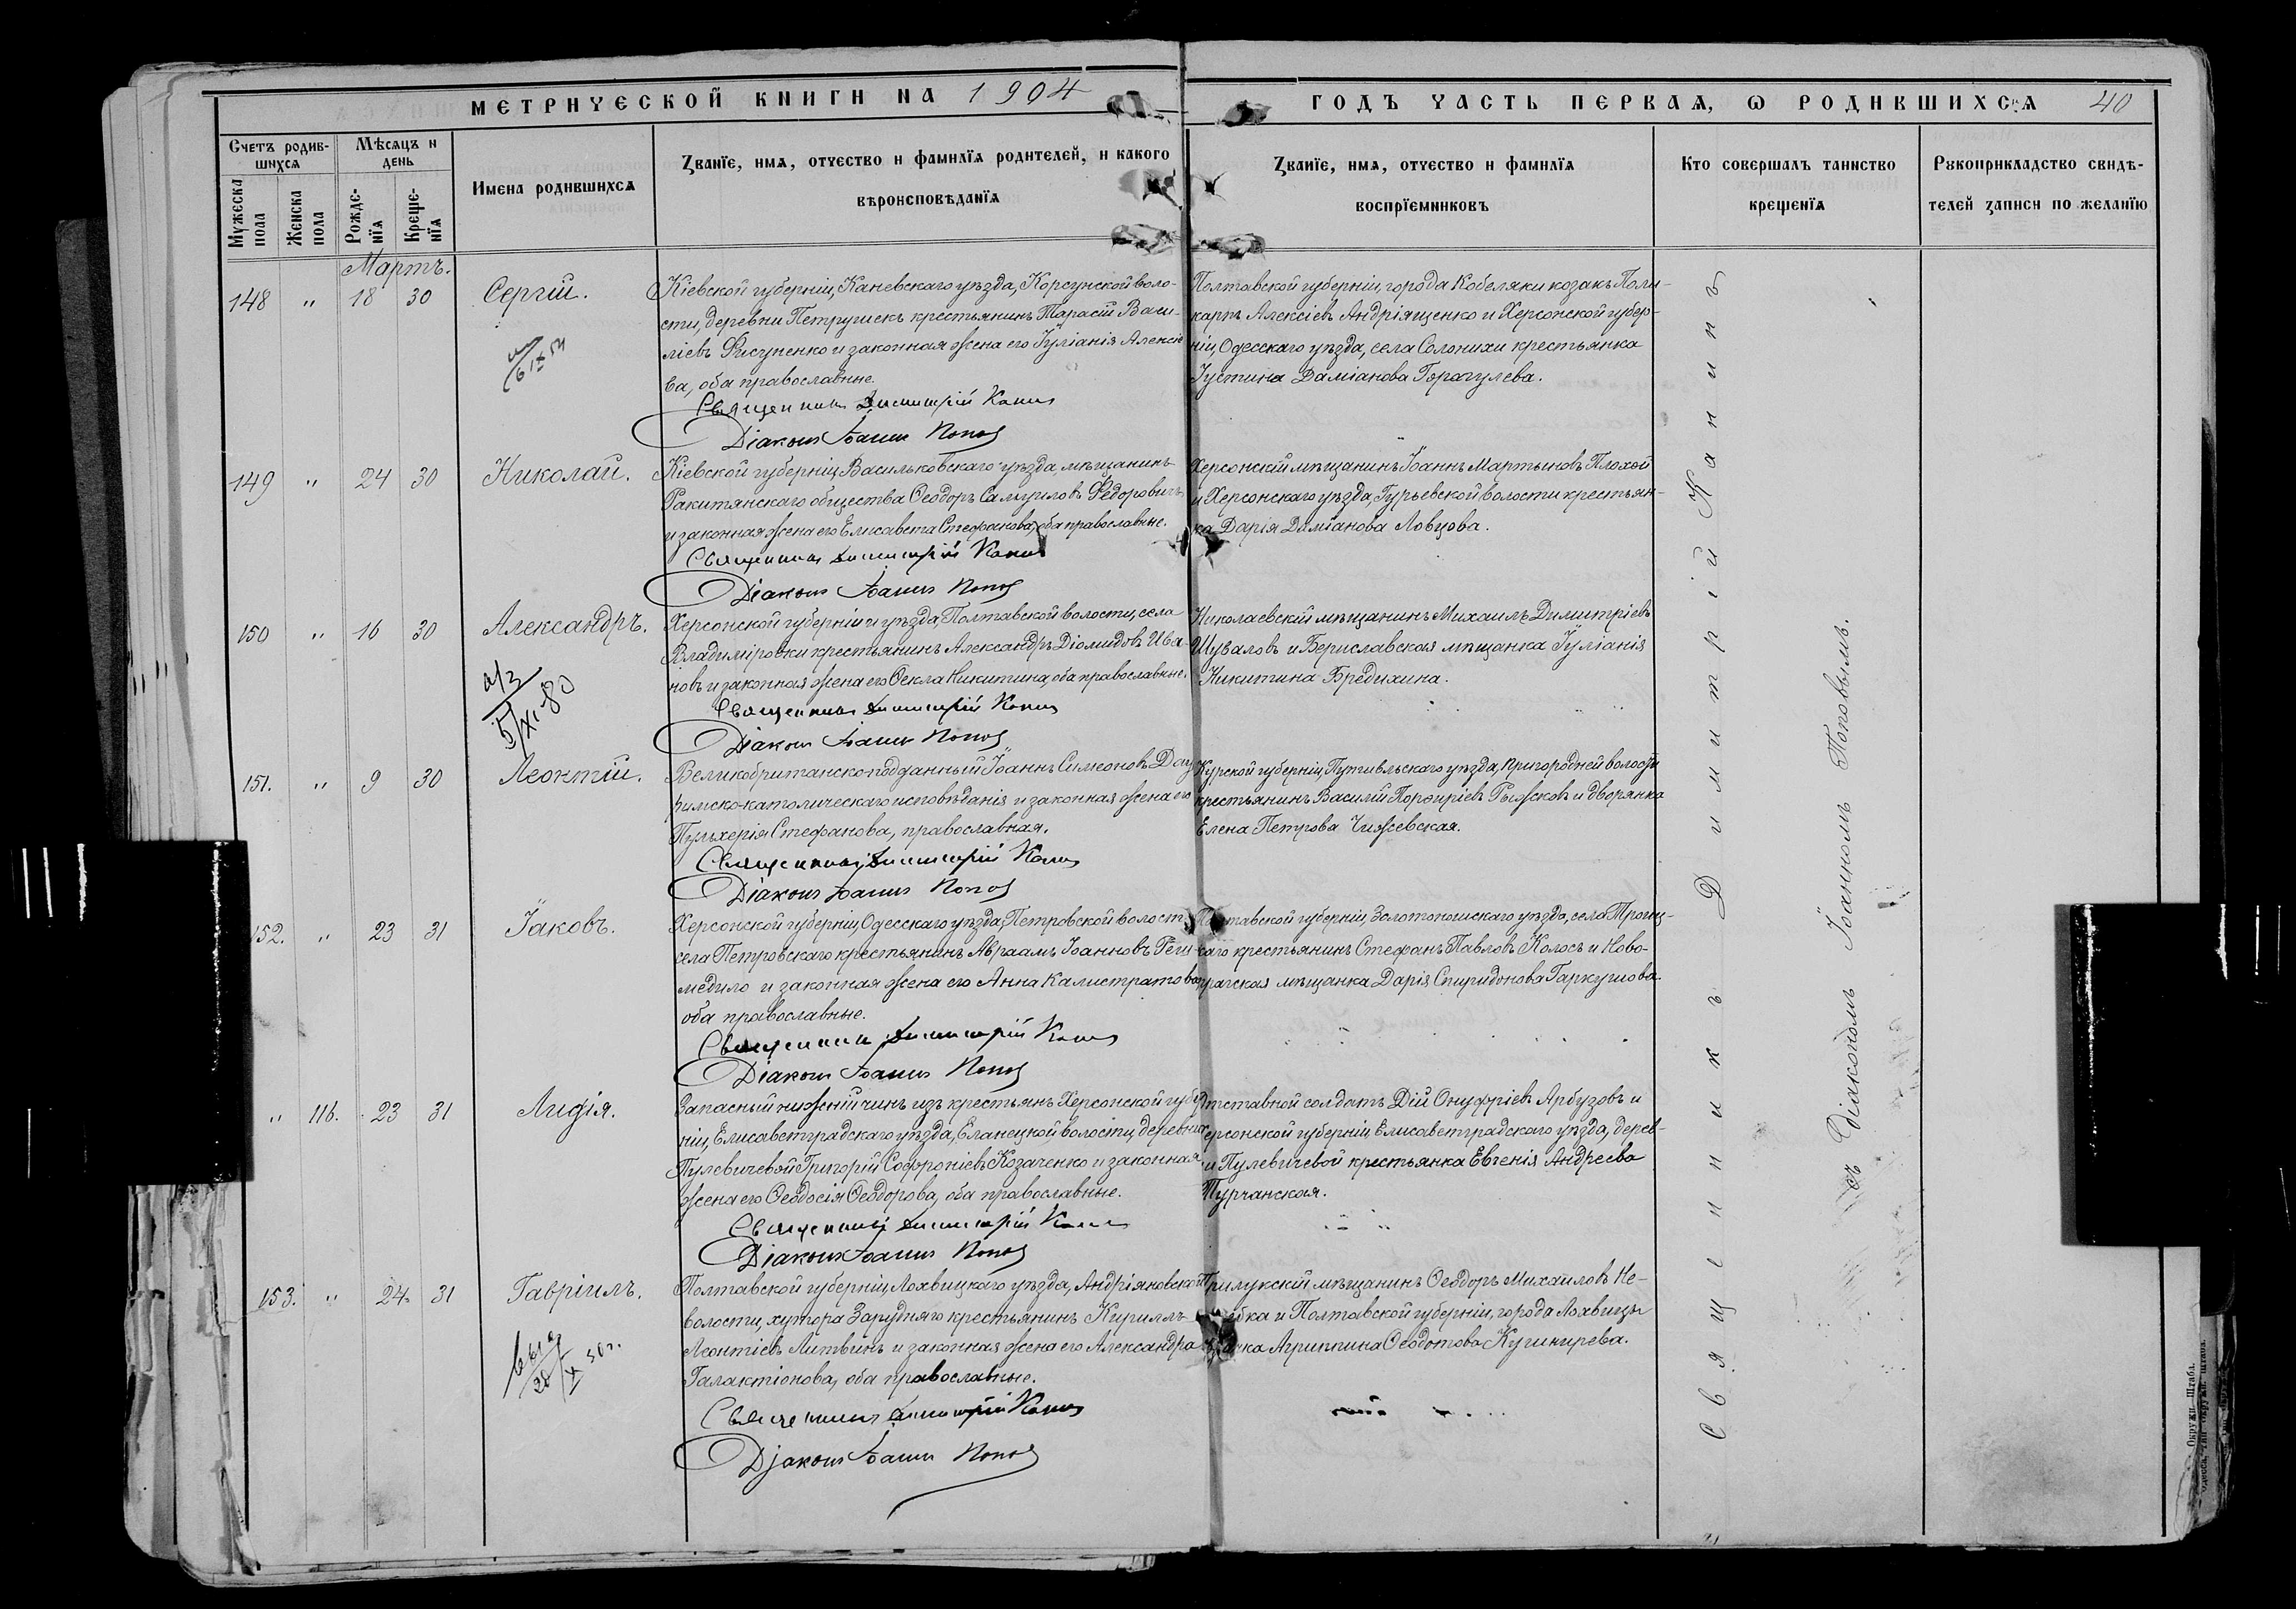 МЕТРИЧЕСКОЙ КНИГИ НА 1904
ГОДЪ ЧАСТЬ ПЕРВАЯ, Ѡ РОДИВШИХСЯ 40
Счетъ родив-
шихся
Мужеска
пола
Женска
пола
Мѣсяцъ и
день
Рожде-
нїя
Креще-
нїя
Имена родившихся
Званїе, имя, отчество и фамилїя родителей, и какого
вѣроисповѣданїя
Званїе, имя, отчество и фамилїя
воспрїемниковъ
Кто совершалъ таинство
крещенїя
Рукоприкладство свидѣ-
телей записи по желанїю
Мартъ.
148 " 18 30 Сергій.
Кіевской губерніи, Каневскаго уѣзда, Корсунской воло-
сти, деревни Петрушекъ крестьянинъ Тарасій Васи-
ліевъ Фисуненко и законная жена его Іуліанія Алексіе
ва, оба православные.
Священникъ Димитрій Канинъ
Діаконъ Іоаннъ Поповъ
Полтавской губерніи, города Кобеляки козакъ Поли-
карпъ Алексіевъ Андріященко и Херсонской губер-
ніи, Одесскаго уѣзда, села Солонихи крестьянка
Іустина Даміанова Горагулева.
149 " 24 30 Николай.
Кіевской губерніи, Васильковскаго уѣзда, мѣщанинъ
Ракитянскаго общества Ѳеодоръ Самуиловъ Федоровичъ
и законная жена его Елисавета Стефанова, оба православные.
Священникъ Димитрій Канинъ
Діаконъ Іоаннъ Поповъ
Херсонскій мѣщанинъ Іоаннъ Мартыновъ Плохой
и Херсонскаго уѣзда, Гурьевской волости крестьян-
ка Дарія Даміанова Ловцова.
150 " 16 30 Александръ.
5/XI-80
Херсонской губерніи и уѣзда, Полтавской волости, села
Владиміровки крестьянинъ Александръ Діомидовъ Ива-
новъ и законная жена его Ѳекла Никитина, оба православные.
Священникъ Димитрій Канинъ
Діаконъ Іоаннъ Поповъ
Николаевскій мѣщанинъ Михаилъ Димитріевъ
Шуваловъ и Бериславская мѣщанка Іуліанія
Никитина Бредихина.
151. " 9 30 Леонтій.
Великобританско-подданный Іоаннъ Симеоновъ
римско-католическаго исповѣданія и законная жена его
Пульхерія Стефанова, православная.
Священникъ Димитрій Канинъ
Діаконъ Іоаннъ Поповъ
Курской губерніи, Путивльскаго уѣзда, Пригородней волости
крестьянинъ Василій Порфиріевъ Рыжковъ и дворянка
Елена Петрова Чижевская.
152. " 23 31 Іаковъ.
Херсонской губерніи, Одесскаго уѣзда, Петровской волости
села Петровскаго крестьянинъ Авраамъ Іоанновъ
медило и законная жена его Анна Калистратова
оба православные.
Священникъ Димитрій Канинъ
Діаконъ Іоаннъ Поповъ
Полтавской губерніи, Золотоношскаго уѣзда, села Троиц-
каго крестьянинъ Стефанъ Павловъ Колосъ и Ново-
мѣщанка Дарія Спиридонова Гаркушова.
" 116. 23 31 Лидія.
Запасный нижній чинъ изъ крестьянъ Херсонской губер
ніи, Елисаветградскаго уѣзда, Еланецкой волости, деревни
Пулевичевой Григорій Софроніевъ Козаченко и законная
жена его Ѳеодосія Ѳеодорова, оба православные.
Священникъ Димитрій Канинъ
Діаконъ Іоаннъ Поповъ
Отставной солдатъ Дій Онуфріевъ Арбузовъ и
Херсонской губерніи, Елисаветградскаго уѣзда, дерев-
ни Пулевичевой крестьянка Евгенія Андреева
Турчанская.
153. " 24. 31 Гавріилъ.
Полтавской губерніи, Лохвицкаго уѣзда, Андріяновской
волости, хутора Заруднаго крестьянинъ Кириллъ
Леонтіевъ Литвинъ и законная жена его Александра
Галактіонова, оба православные.
Священникъ Димитрій Канинъ
Діаконъ Іоаннъ Поповъ
Прилукскій мѣщанинъ Ѳеодоръ Михаиловъ Не-
и Полтавской губерніи, города Лохвицы
Агриппина Ѳеодотова Кушнирева.
Священникъ Димитрій Канинъ
съ Діакономъ Іоанномъ Поповымъ.